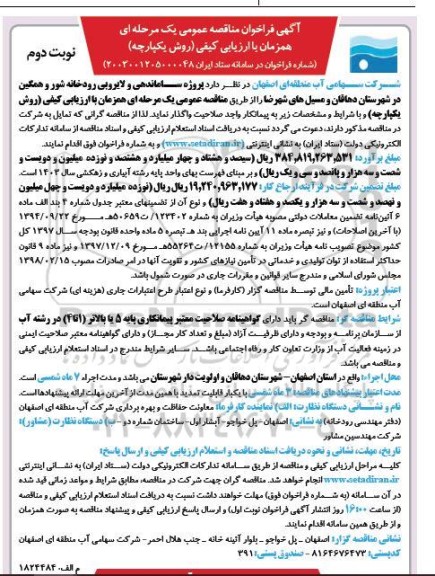 آگهی فراخوان مناقصه عمومی یک مرحله ای
همزمان با ارزیابی کیفی (روش یکپارچه)
(شماره فراخوان در سامانه ستاد ایران ۲۰۰۳۰۰۱۲۰۵۰۰۰۰۴۸)
نوبت دوم
شرکت سهامی آب منطقه‌ای اصفهان در نظر دارد پروژه ساماندهی و لایروبی رودخانه شور و همگین
در شهرستان دهاقان و مسیل های شهرضا را از طریق مناقصه عمومی یک مرحله ای همزمان با ارزیابی کیفی (روش
یکپارچه) و با شرایط و مشخصات زیر به پیمانکار واجد صلاحیت واگذار نماید. لذا از مناقصه گرانی که تمایل به شرکت
در مناقصه مذکور دارند، دعوت می گردد نسبت به دریافت اسناد استعلام ارزیابی کیفی و اسناد مناقصه از سامانه تدارکات
الکترونیکی دولت (ستاد ایران) به نشانی اینترنتی (www.setadiran.ir) و به شماره فراخوان فوق اقدام نمایند.
مبلغ برآورد: ۳۸۴،۸۱۹،۲۶۳،۵۳۱ ریال (سیصد و هشتاد و چهار میلیارد و هشتصد و نوزده میلیون و دویست و
شصت و سه هزار و پانصد و سی و یک ریال) و بر مبنای فهرست بهای واحد پایه رشته آبیاری و زهکشی سال ۱۴۰۳ است.
مبلغ تضمین شرکت در فرآیند ارجاع کار: ۱۹،۲۴۰،۹۶۳،۱۷۷ ریال (نوزده میلیارد و دویست و چهل میلیون
و نهصد و شصت و سه هزار و یکصد و هفتاد و هفت ریال) و نوع آن از تضمینهای معتبر جدول شماره ۴ بند الف ماده
۶ آئین‌نامه تضمین معاملات دولتی مصوبه هیأت وزیران به شماره ۱۲۳۴۰۲/ت۵۰۶۵۹هـ مورخ ۱۳۹۴/۰۹/۲۲
(با آخرین اصلاحات) و نیز تبصره ماده ۱۱ آیین نامه اجرایی بند هـ تبصره ۵ ماده واحده قانون بودجه سال ۱۳۹۷ کل
کشور موضوع تصویب نامه هیأت وزیران به شماره ۱۲۱۵۵/ت۵۵۲۶۴هـ مورخ ۱۳۹۷/۱۲/۰۹ و نیز ماده ۹ قانون
حداکثر استفاده از توان تولیدی و خدماتی در تأمین نیازهای کشور و تقویت آنها در امر صادرات مصوب ۱۳۹۸/۰۲/۱۵
مجلس شورای اسلامی و مندرج سایر قوانین و مقررات جاری در صورت شمول باشد.
اعتبار پروژه: تأمین مالی توسط مناقصه گزار (کارفرما) و نوع اعتبار طرح اعتبارات جاری (هزینه ای) شرکت سهامی
آب منطقه ای اصفهان است.
شرایط مناقصه گر: مناقصه گر باید دارای گواهینامه صلاحیت معتبر پیمانکاری پایه ۵ یا بالاتر (۱تا۴) در رشته آب
از سازمان برنامه و بودجه و دارای ظرفیت آزاد (مبلغ و تعداد کار مجاز) و دارای گواهینامه معتبر صلاحیت ایمنی
در زمینه فعالیت آب از وزارت تعاون کار و رفاه اجتماعی باشد. سایر شرایط مندرج در اسناد استعلام ارزیابی کیفی
و مناقصه می باشد.
محل اجرا: واقع در استان اصفهان - شهرستان دهاقان و اولویت دار شهرستان می باشد و مدت اجراء ۷ ماه شمسی است.
مدت اعتبار پیشنهاد های مناقصه: ۳ ماه شمسی با یکبار قابلیت تمدید با همین مدت از آخرین مهلت ارائه پیشنهادها است.
نام و نشانی دستگاه نظارت: الف) نماینده کارفرما: معاونت حفاظت و بهره برداری شرکت آب منطقه ای اصفهان
(دفتر مهندسی رودخانه) به نشانی: اصفهان - پل خواجو - آبشار اول - ساختمان شماره دو - ب) دستگاه نظارت (مشاور):
شرکت مهندسین مشاور
تاریخ، مهلت، نشانی و نحوه دریافت اسناد مناقصه و استعلام ارزیابی کیفی و ارسال پاسخ:
کلیه مراحل ارزیابی کیفی و مناقصه از طریق سامانه تدارکات الکترونیکی دولت (ستاد ایران) به نشانی اینترنتی
www.setadiran.ir انجام خواهد شد. مناقصه گران جهت شرکت در مناقصه، مطابق شرایط و مواعد زمانی قید شده
در آن سامانه (به شماره فراخوان فوق) مهلت خواهند داشت نسبت به دریافت اسناد استعلام ارزیابی کیفی و مناقصه
(از ساعت ۱۶:۰۰ روز انتشار آگهی فراخوان نوبت اول) و ارسال پاسخ ارزیابی کیفی و پیشنهاد مناقصه به صورت همزمان
و از طریق همین سامانه اقدام نمایند.
نشانی مناقصه گزار: اصفهان - پل خواجو - بلوار آئینه خانه - جنب هلال احمر - شرکت سهامی آب منطقه ای اصفهان
کدپستی: ۸۱۶۴۶۷۶۴۷۳ - صندوق پستی: ۳۹۱
م الف: ۱۸۲۴۴۸۴